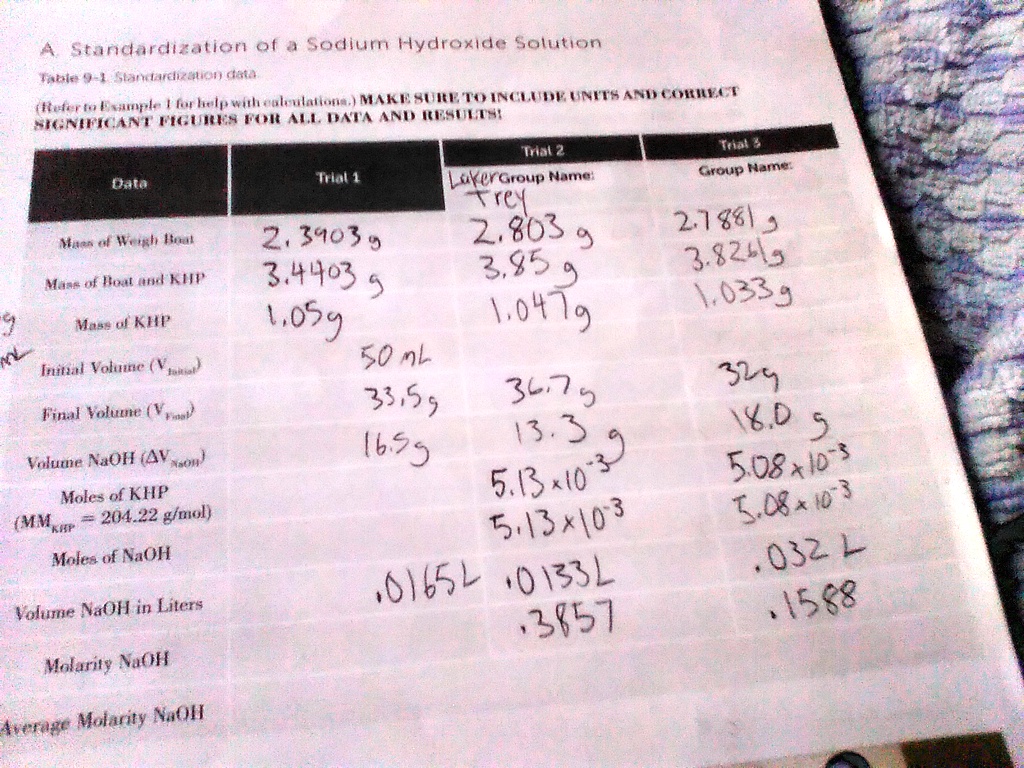 A. Standardization of a Sodium Hydroxide Solution
Table 9-1 Standardization data
(Refer to Example 1 for help with calculations.) MAKE SURE TO INCLUDE UNITS AND CORRECT
SIGNIFICANT FIGURES FOR ALL DATA AND RESULTS!
Data Trial 1 Trial 2 Trial 3
Group Name: Group Name:
Trey
Mass of Weigh Boat 2.3903 g 2.803 g 2.7881 g
Mass of Boat and KHP 3.4403 g 3.85 g 3.8261 g
g
Mass of KHP 1.05g 1.047g 1.033g
mL
Initial Volume (VInitial) 50 mL
Final Volume (VFinal) 33.5g 36.7g 32g
Volume NaOH (ΔVNaOH) 16.5g 13.3 g 18.0 g
Moles of KHP
(MMKHP = 204.22 g/mol) 5.13 x10⁻³ 5.08 x10⁻³
Moles of NaOH 5.13 x10⁻³ 5.08 x10⁻³
Volume NaOH in Liters .0165L .0133L .032 L
Molarity NaOH .3857 .1588
Average Molarity NaOH